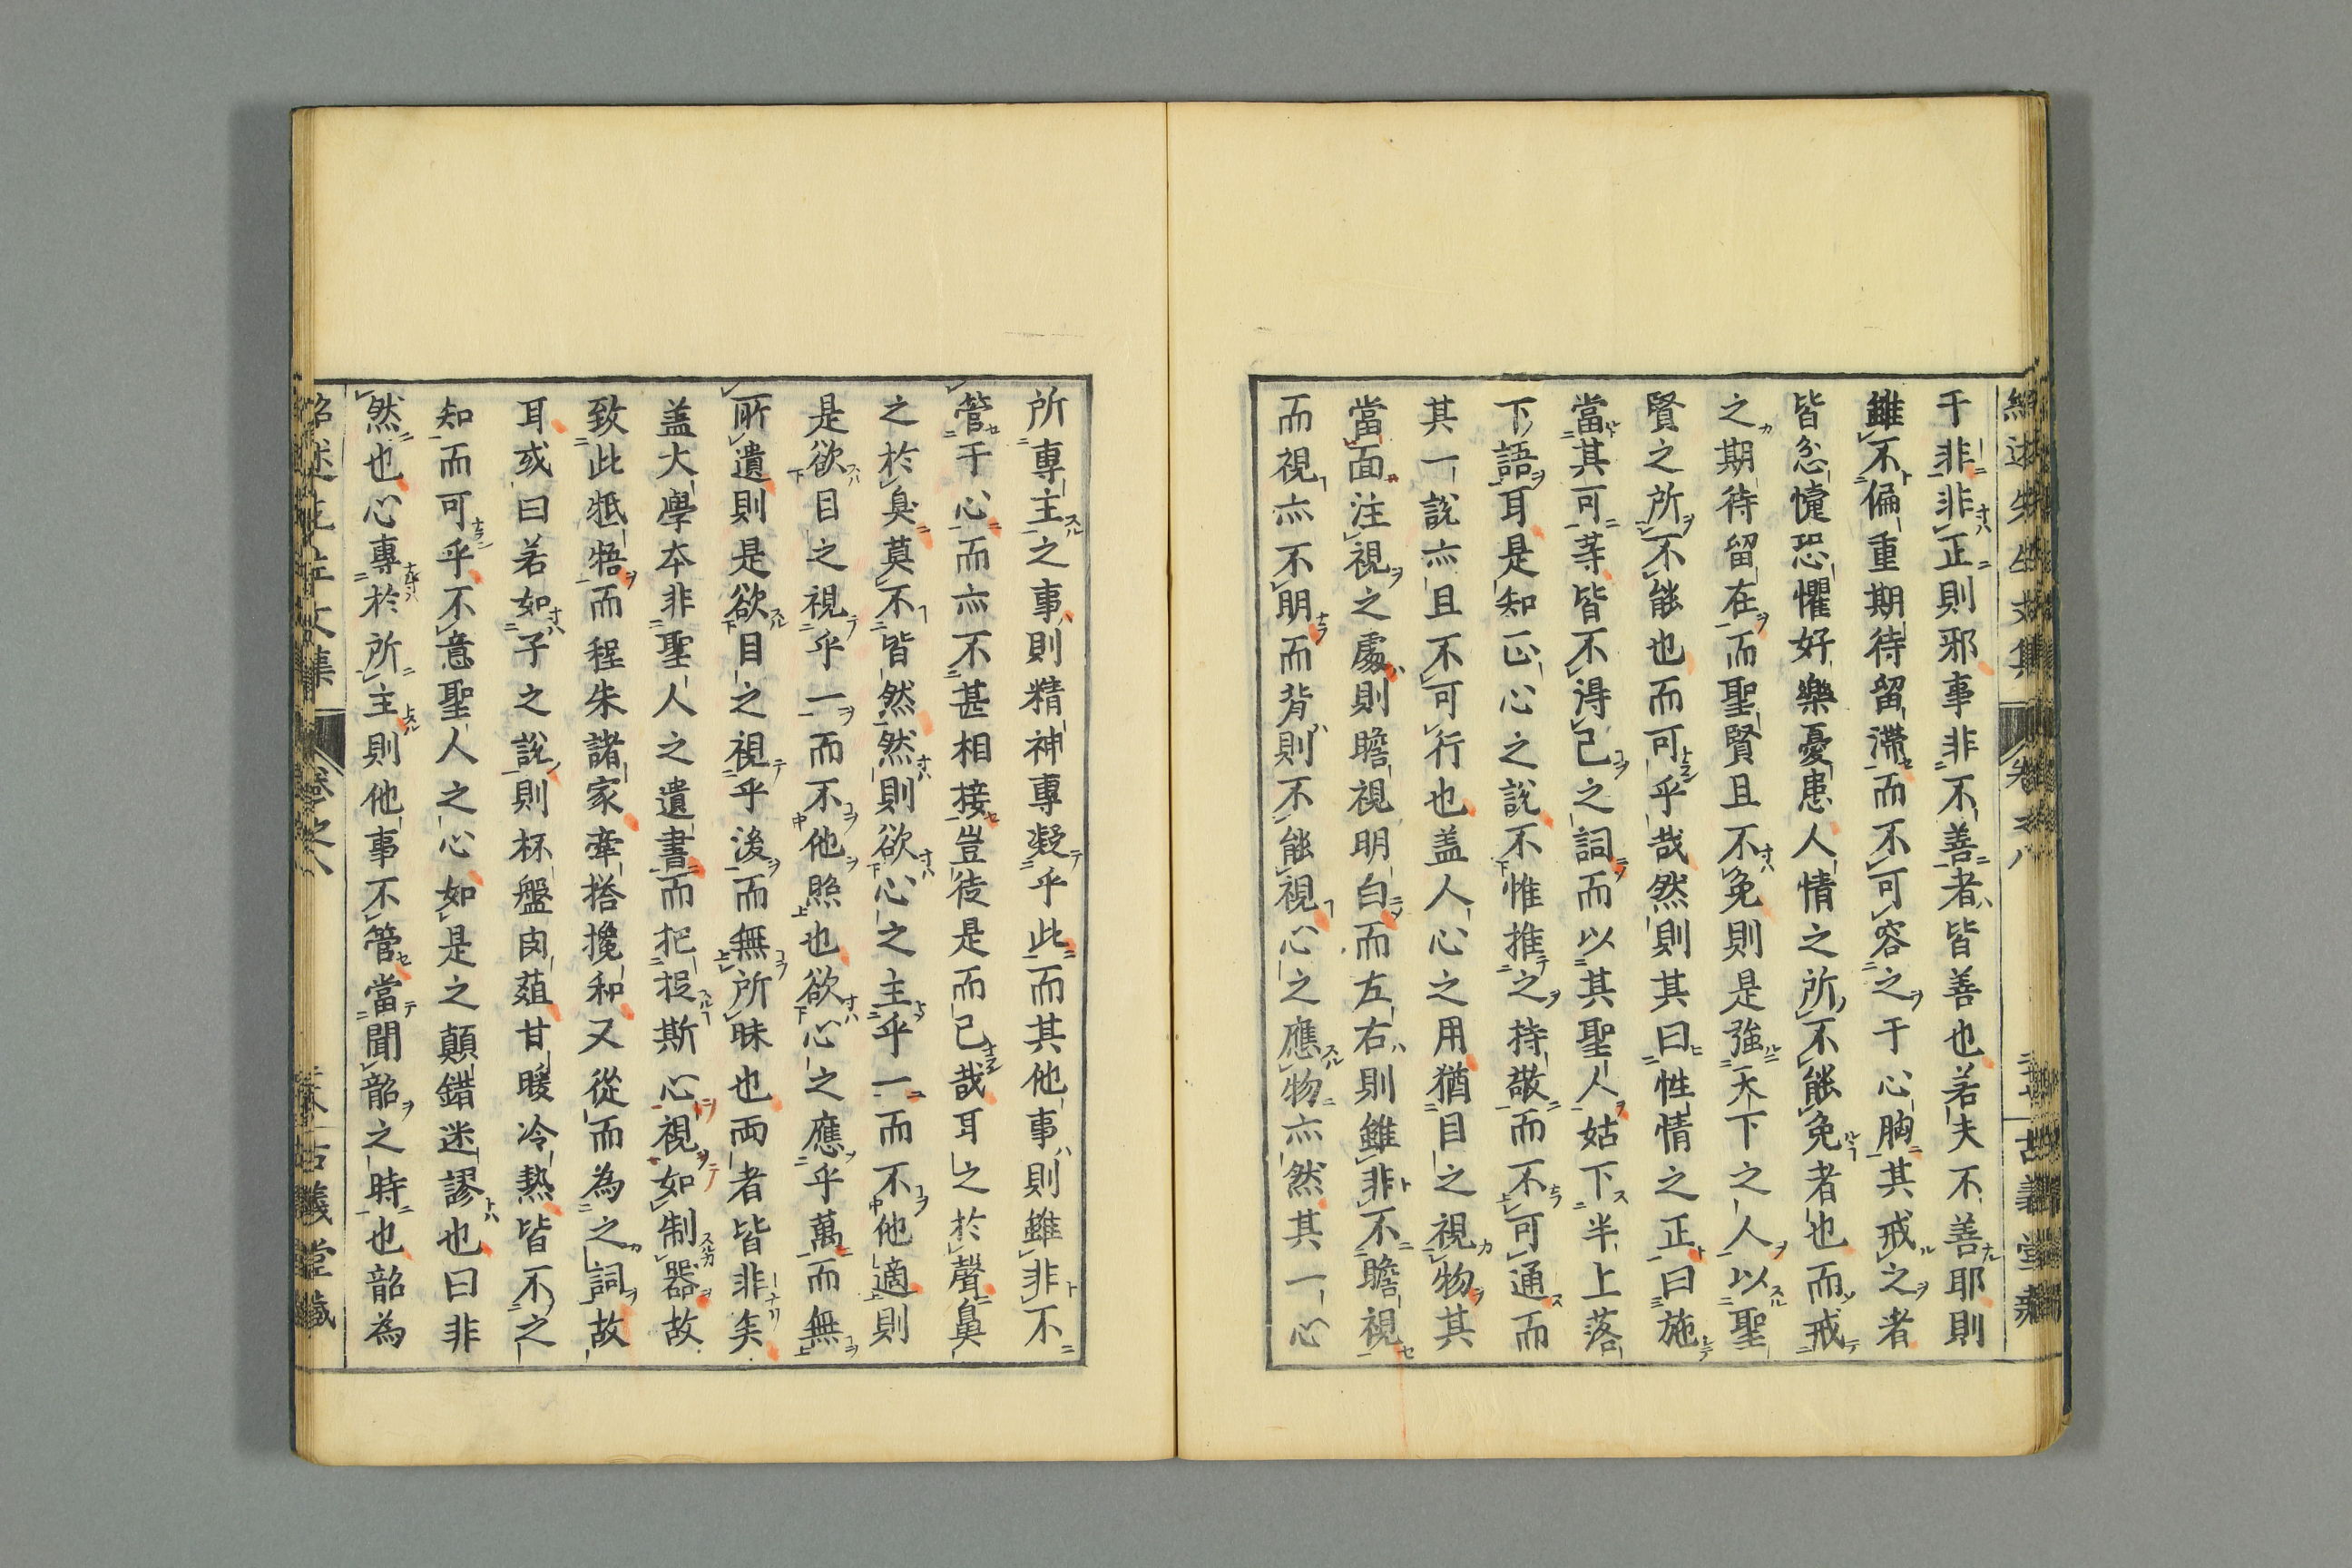 于非非正則邪事非不善者皆善也若夫不善耶則
雖不偏重期待留滞而不可容之于心胸其戒之者
皆忿懥恐懼好樂憂患人情之所不能免者也而戒
之期待留在而聖賢且不免則是強天下之人以聖
賢之所不能也而可乎哉然則其曰性情之正曰施
當其可等皆不得已之詞而以其聖人姑下半上落
下語耳是知正心之説不惟推之持敬而不可通而
其一説亦且不可行也盖人心之用猶目之視物其
當面注視之處則瞻視明白而左右則雖非不瞻視
而視亦不明而背則不能視心之應物亦然其一心
所專主之事則精神專凝乎此而其他事則雖非不
管于心而亦不甚相接豈徒是而已哉耳之於聲鼻
之於臭莫不皆然然則欲心之主乎一而不他適則
是欲目之視乎一而不他照也欲心之應乎萬而無
所遺則是欲目之視乎後而無所昧也両者皆非矣
盖大學本非聖人之遺書而把捉斯心視如制器故
致此牴牾而程朱諸家牽搭攙和又從而為之詞故
耳或曰若如子之説則杯盤肉葅甘暖冷熱皆不之
知而可乎不意聖人之心如是之顛錯迷謬也曰非
然也心專於所主則他事不管當聞韶之時也韶為
古義堂藏